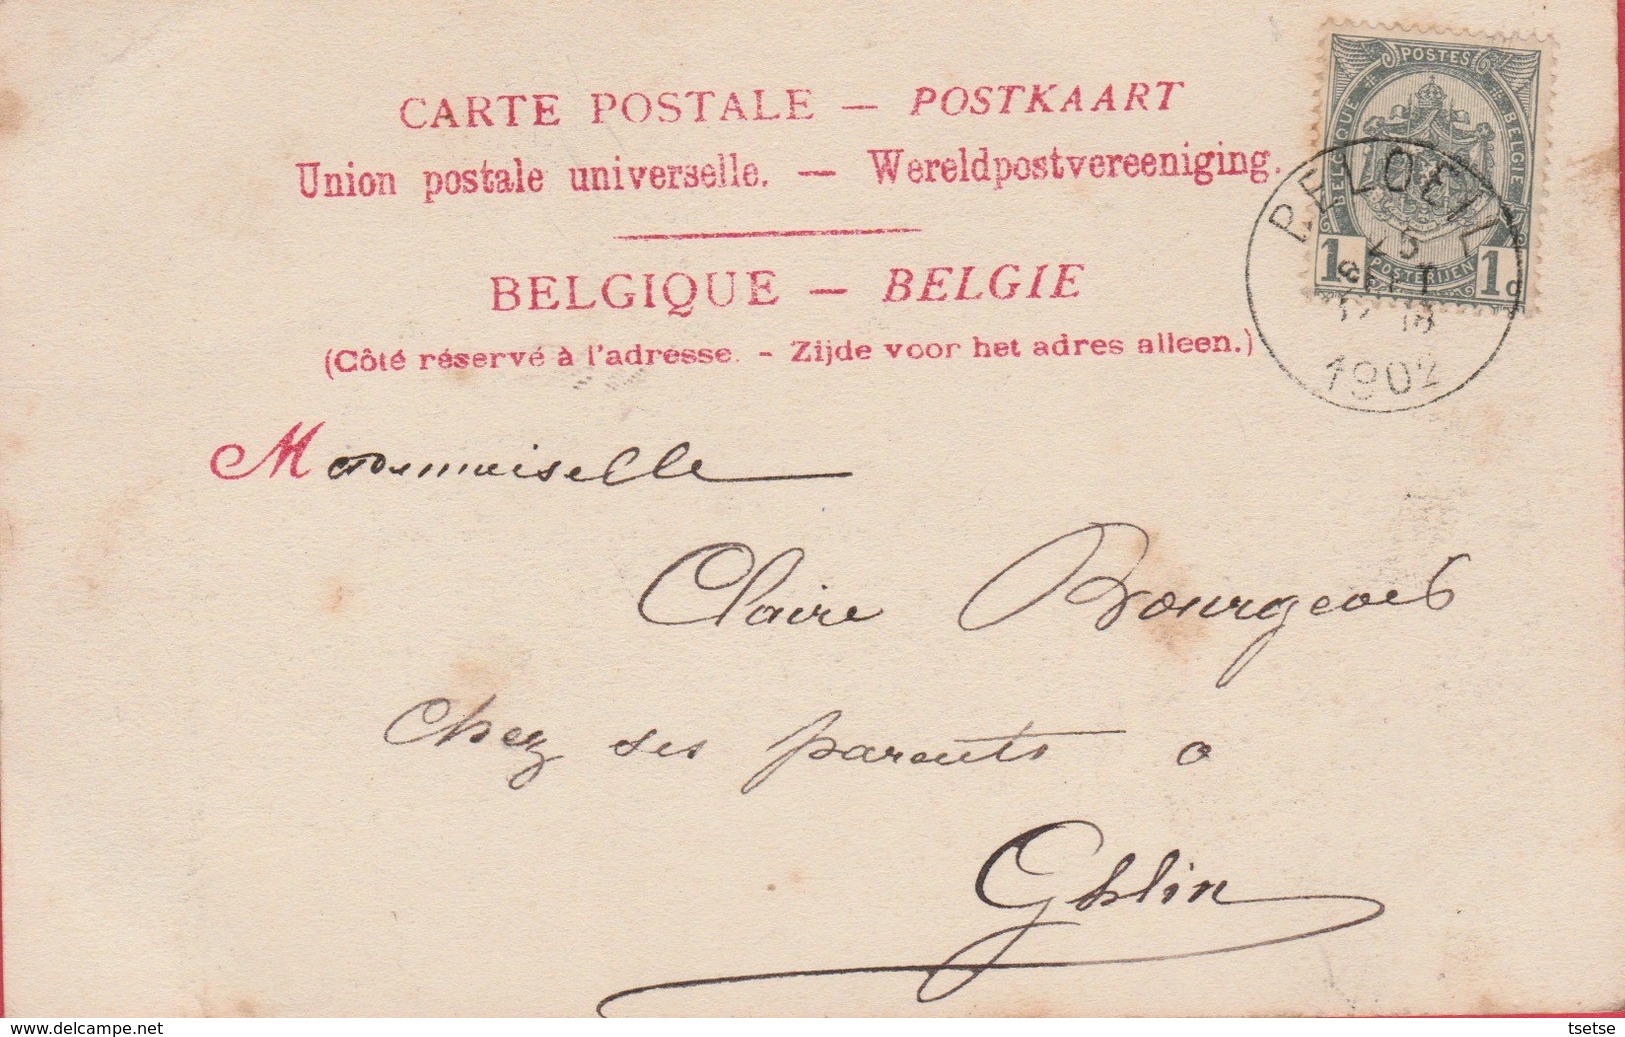 CARTE POSTALE — POSTKAART
Union postale universelle. — Wereldpostvereeniging.
BELGIQUE — BELGIE
(Côté réservé à l'adresse. - Zijde voor het adres alleen.)
POSTES
BELGIQUE
BELGIE
POSTERIJEN
1 1c
BELOEIL
25
1902
Mademoiselle
Claire Bourgeois
Chez ses parents à
Ghlin
www.delcampe.net
tsetse